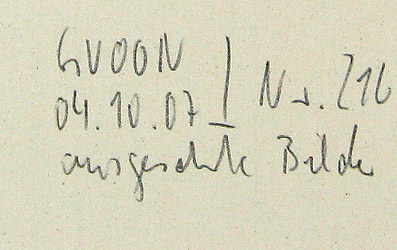 GVOON
04.10.07 | Nr. 216
Bilder